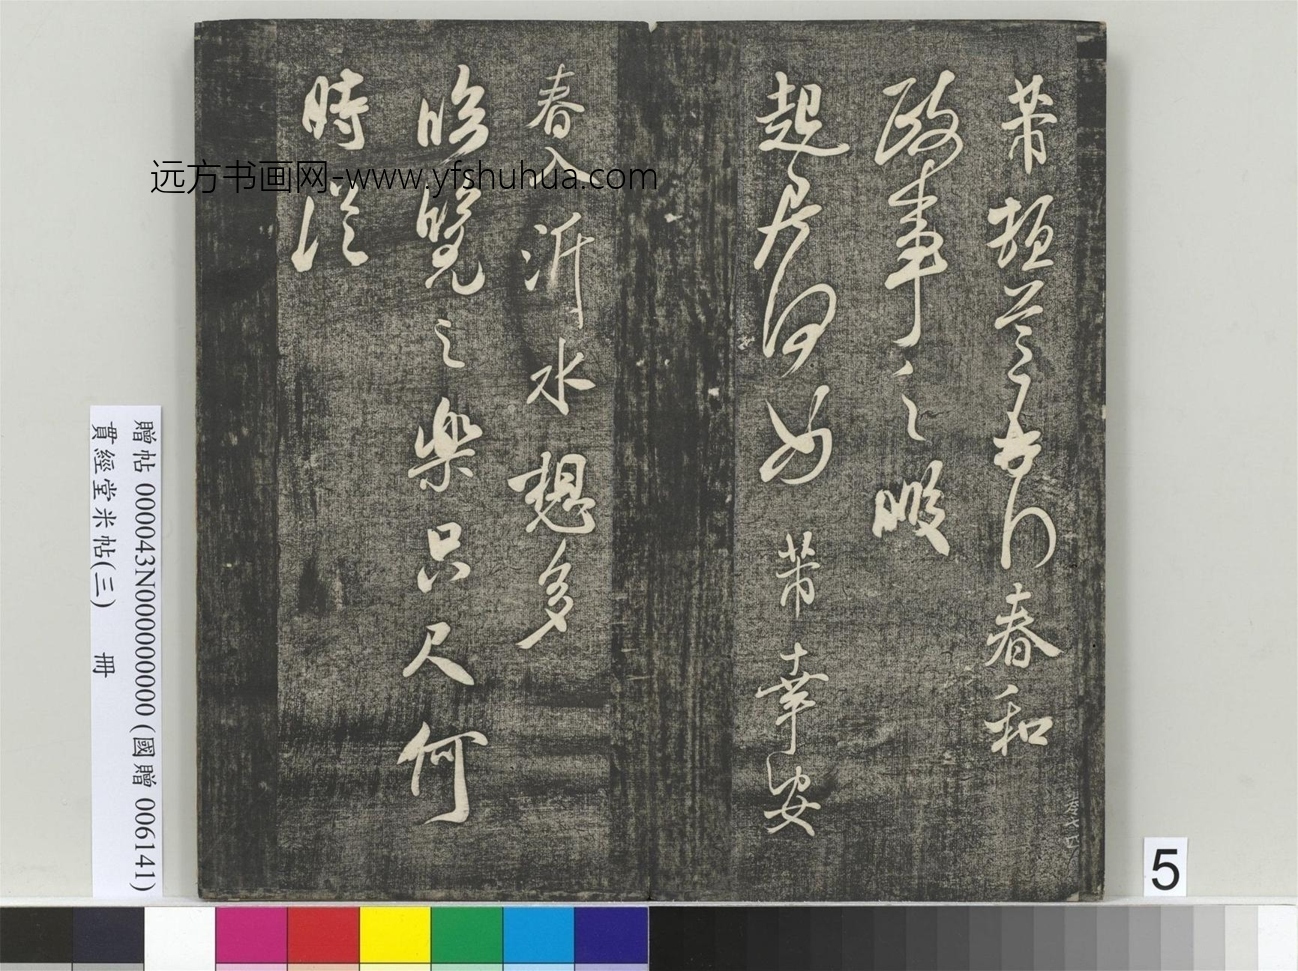 芾頓首啓春和
政事之暇
起居何如芾幸安
春入沂水想多
臨覽之樂只尺何
時從
远方书画网-www.yfshuhua.com
贈帖 000043N000000000 (國贈 006141)
貫經堂米帖(三) 冊
5